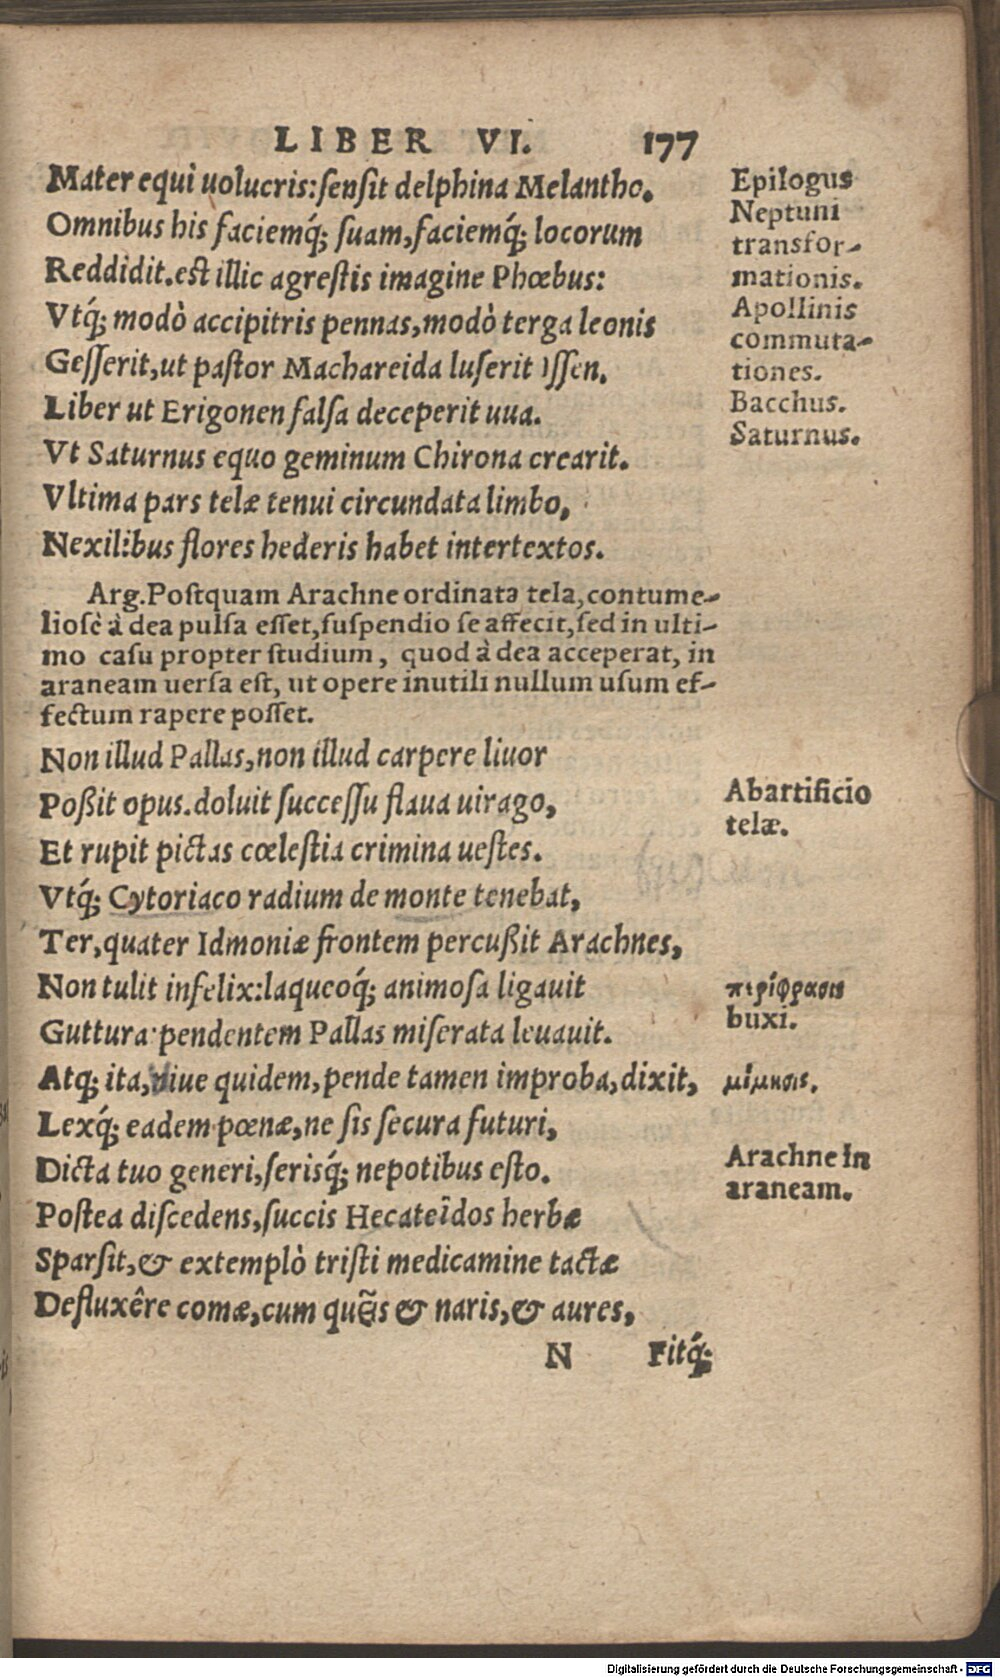 LIBER VI. 177
Mater equi uolucris: sensit delphina Melantho.
Omnibus his faciemq́; suam, faciemq́; locorum
Reddidit. est illic agrestis imagine Phœbus:
Vtq́; modò accipitris pennas, modò terga leonis
Gesserit, ut pastor Machareida luserit Issen.
Liber ut Erigonen falsa deceperit uua.
Vt Saturnus equo geminum Chirona crearit.
Vltima pars telæ tenui circundata limbo,
Nexilibus flores hederis habet intertextos.
Epilogus
Neptuni
transfor-
mationis.
Apollinis
commuta-
tiones.
Bacchus.
Saturnus.
Arg. Postquam Arachne ordinata tela, contume-
liosè à dea pulsa esset, suspendio se affecit, sed in ulti-
mo casu propter studium, quod à dea acceperat, in
araneam uersa est, ut opere inutili nullum usum ef-
fectum rapere posset.
Non illud Pallas, non illud carpere liuor
Poßit opus. doluit successu flaua uirago,
Et rupit pictas cœlestia crimina uestes.
Vtq́; Cytoriaco radium de monte tenebat,
Ter, quater Idmoniæ frontem percußit Arachnes,
Non tulit infelix: laqueoq́; animosa ligauit
Guttura: pendentem Pallas miserata leuauit.
Atq; ita, uiue quidem, pende tamen improba, dixit,
Lexq́; eadem pœnæ, ne sis secura futuri,
Dicta tuo generi, serisq́; nepotibus esto.
Postea discedens, succis Hecateîdos herbæ
Sparsit, & extemplò tristi medicamine tactæ
Defluxêre comæ, cum quîs & naris, & aures,
Ab artificio
telæ.
περίφρασις
buxi.
μίμησις.
Arachne in
araneam.
N Fitq́;
Digitalisierung gefördert durch die Deutsche Forschungsgemeinschaft - DFG